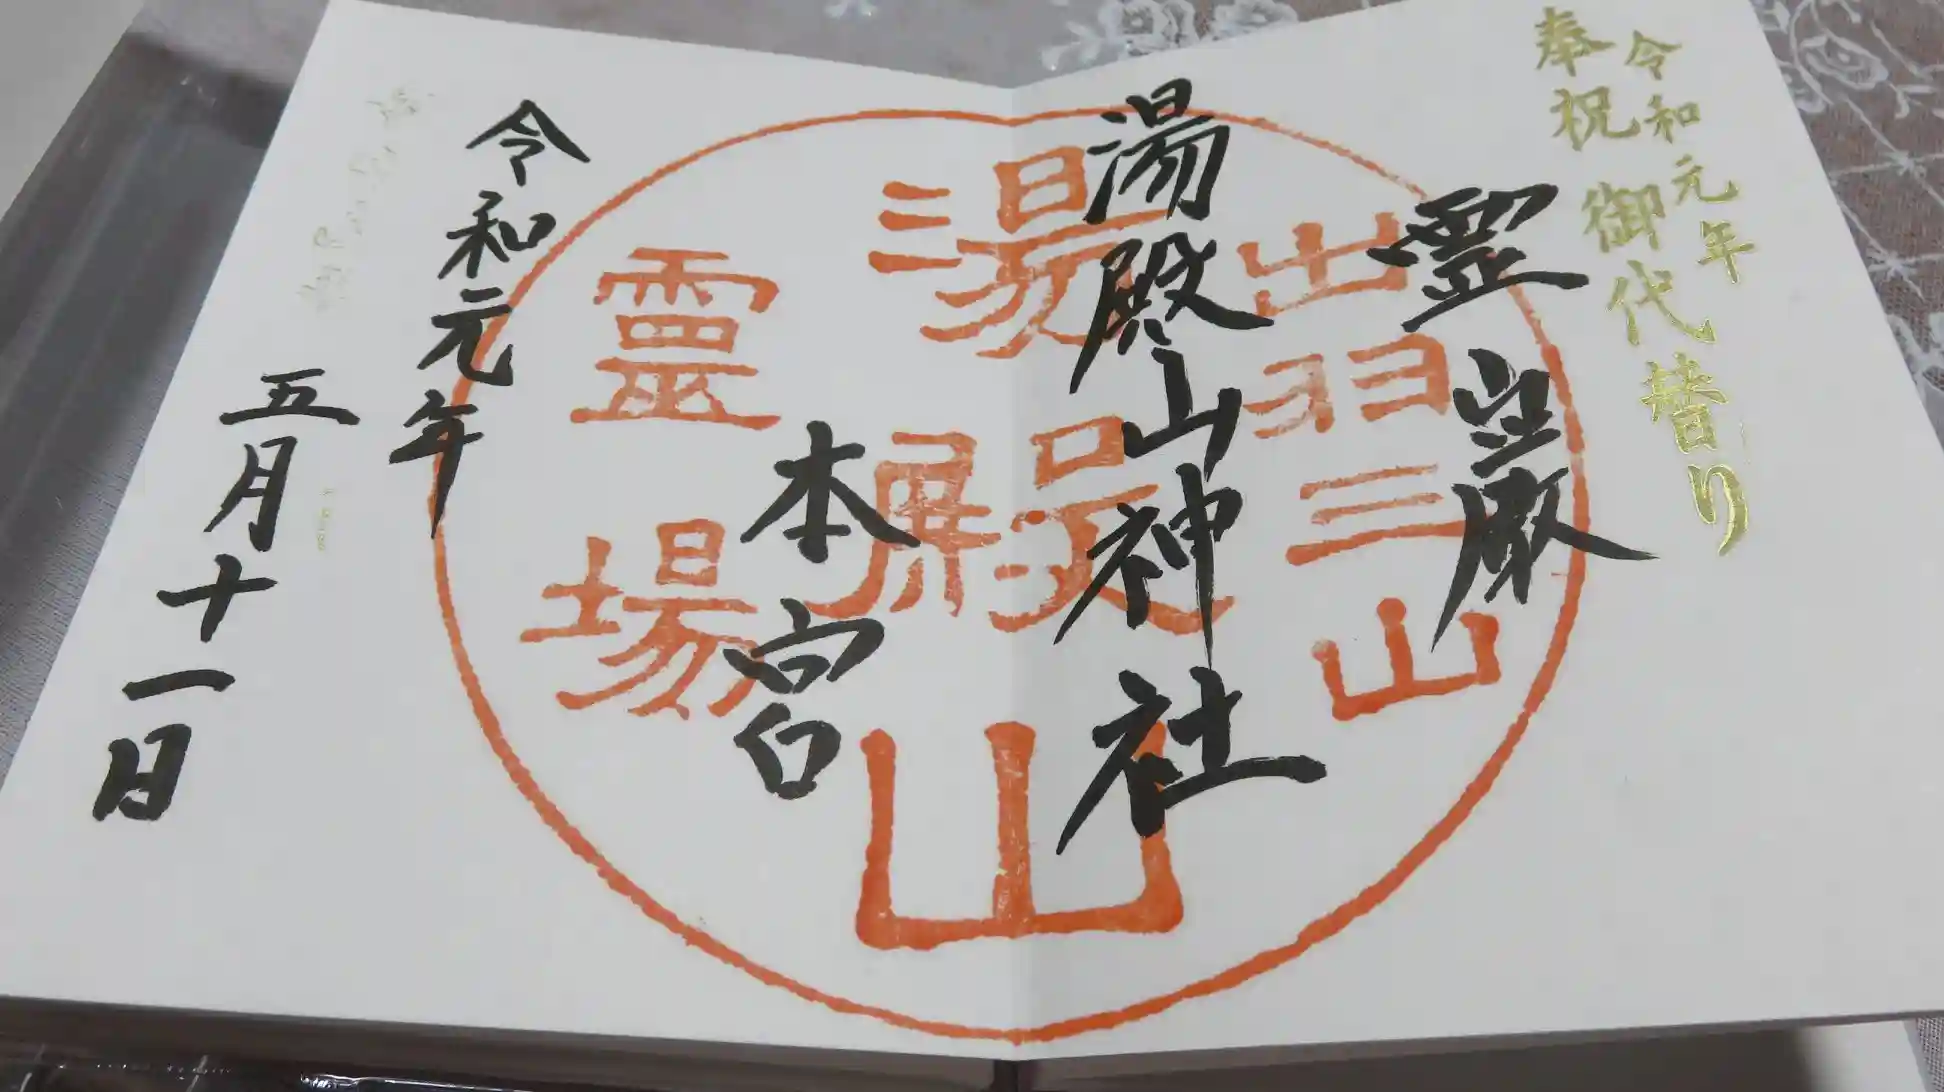 令和元年
奉祝 御代替り
霊嚴
湯殿山神社
本宮
令和元年
五月十一日
出羽三山
湯殿山
霊場